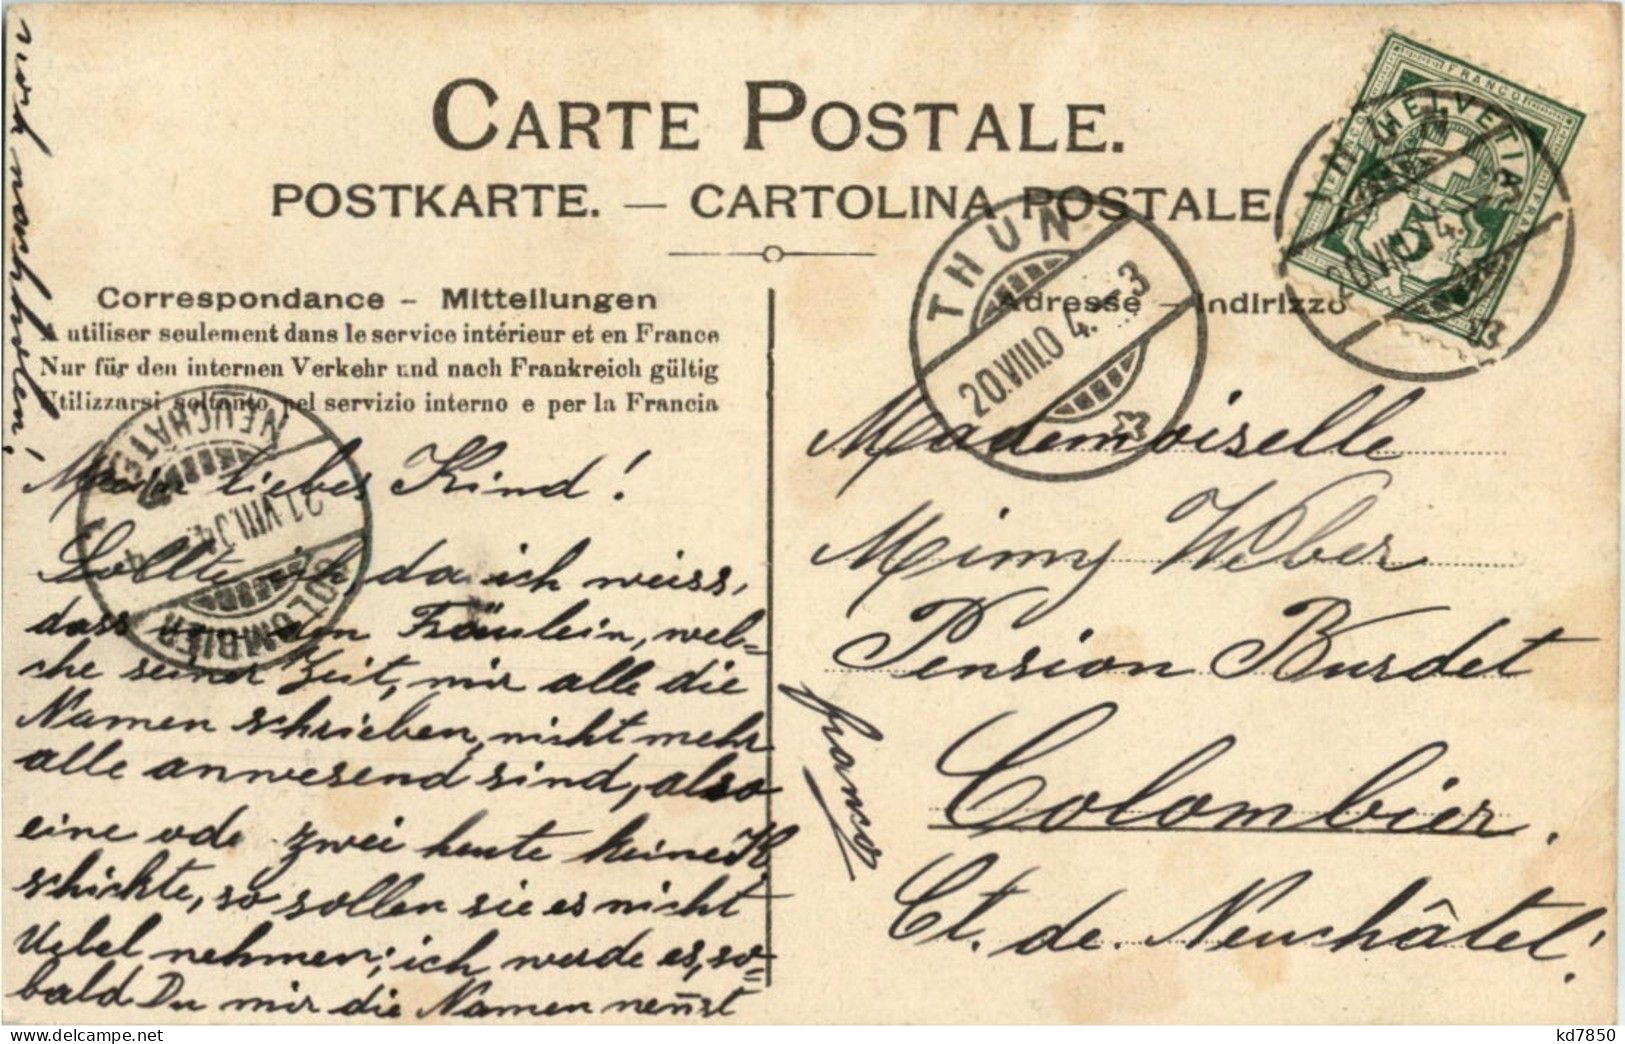 CARTE POSTALE.
POSTKARTE. — CARTOLINA POSTALE.
Correspondance - Mitteilungen
A utiliser seulement dans le service intérieur et en France
Nur für den internen Verkehr und nach Frankreich gültig
Utilizzarsi soltanto nel servizio interno e per la Francia
Adresse - Indirizzo
FRANCO
HELVETIA
5
THUN
20.VIII.04.-3
20.VIII.04.
NEUCHATEL
21.VIII.04
COLOMBIER
Mein liebes Kind!
Sollte ich, da ich weiss,
dass von den Fräulein, wel-
che seiner Zeit, mir alle die
Namen schrieben, nicht mehr
alle anwesend sind, also
eine ode zwei heute keine K
schickte, so sollen sie es nicht
Uebel nehmen; ich werde es, so-
bald Du mir die Namen nennst
noch nachholen!
Mademoiselle
Mimy Weber
Pension Burdet
Colombier.
Ct. de Neuchâtel!
franco
kd7850